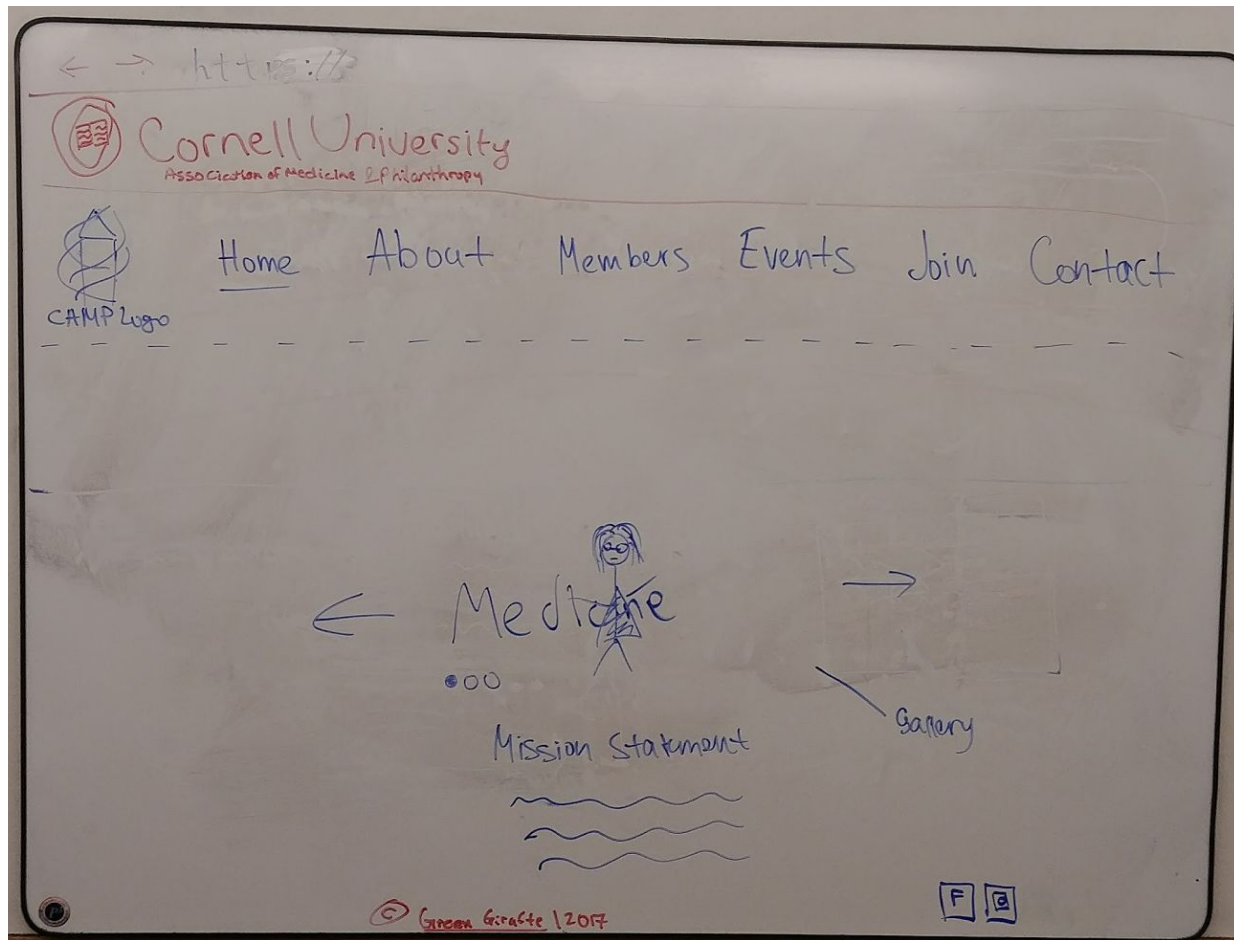 ← → https://
Cornell University
Association of Medicine & Philanthropy
Home About Members Events Join Contact
CAMP Logo
← Medicine →
Gallery
Mission Statement
F
© Green Giraffe | 2017